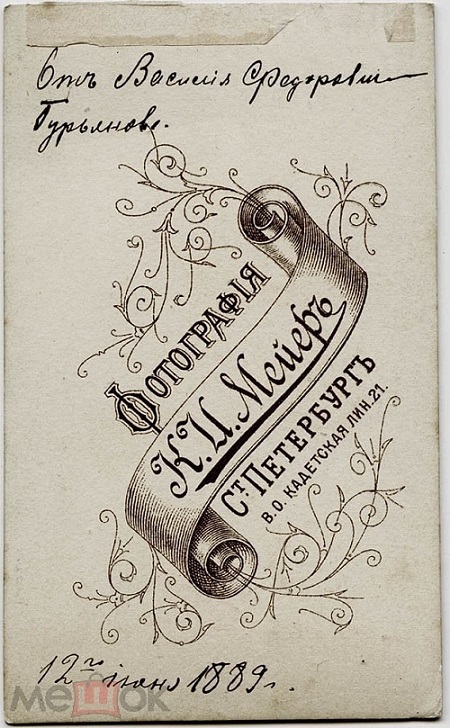 Отъ Василія Ѳедоровича
Гурьянова.
ФОТОГРАФІЯ
К.И. Мейеръ
СТ ПЕТЕРБУРГЪ
В.О. КАДЕТСКАЯ ЛИН. 21.
12го іюня 1889 г.
мешок